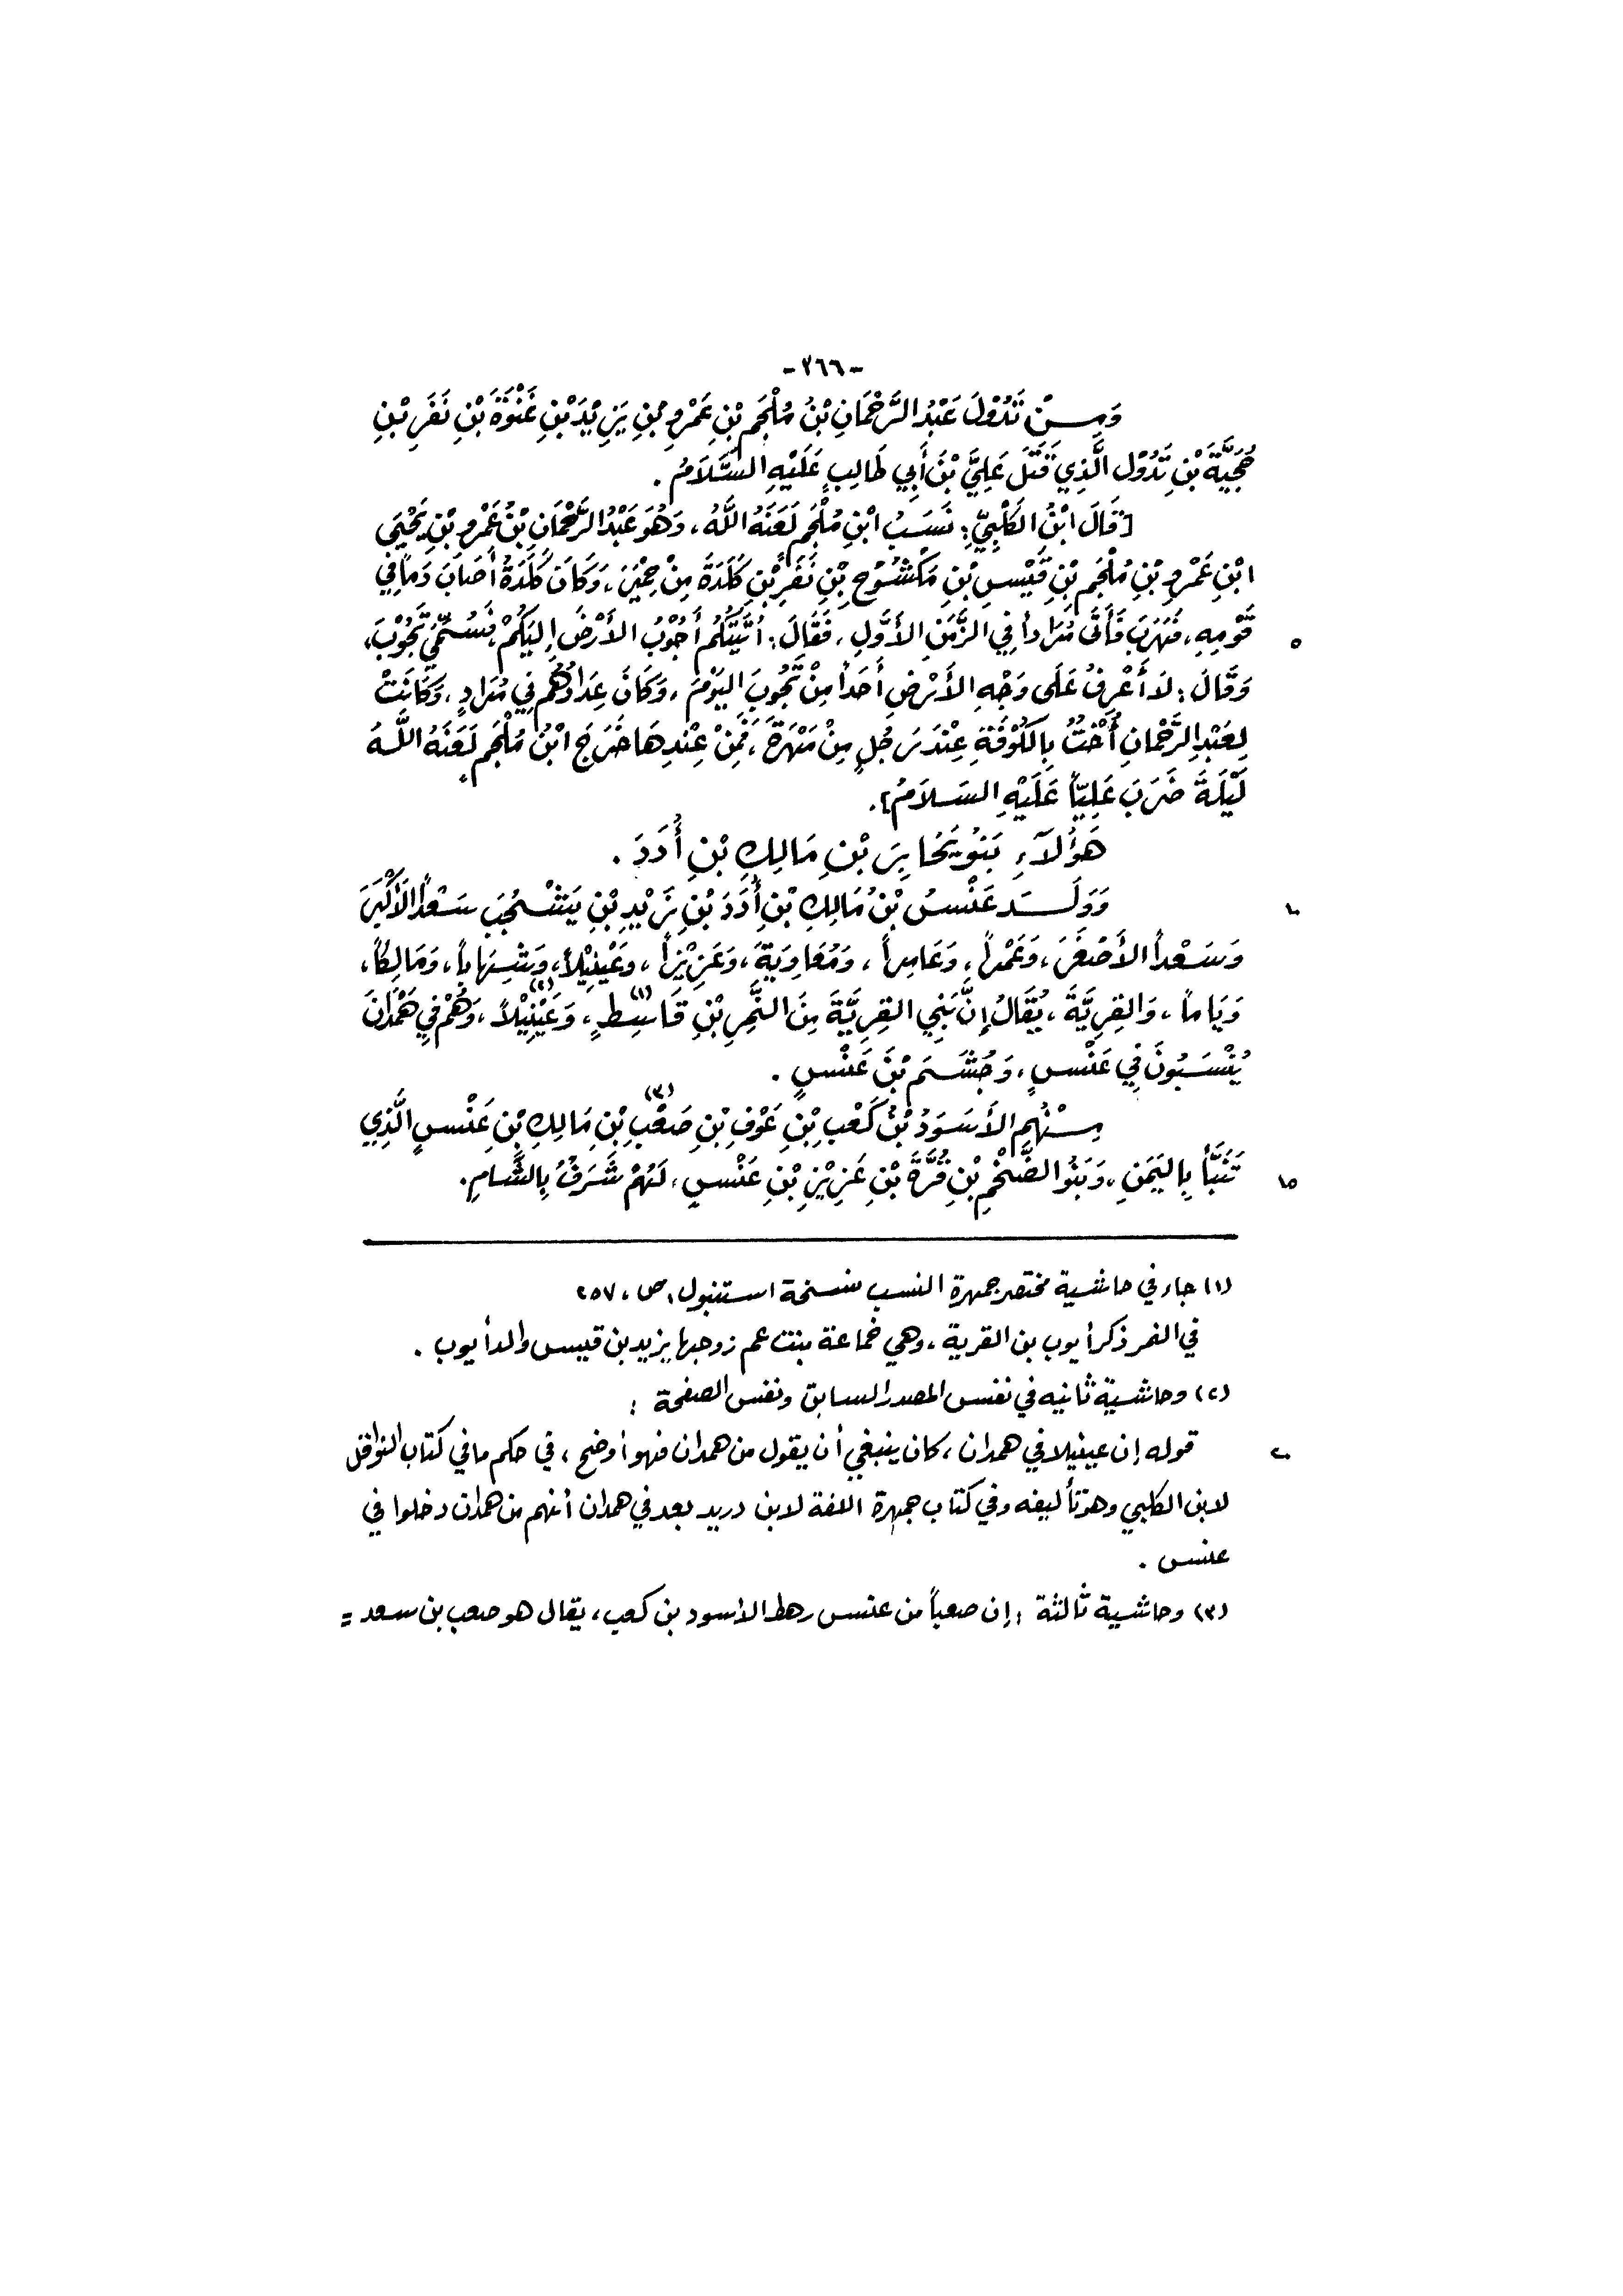 -٣٦٦-
وَمِنْ تَدُوْلَ عَبْدُ الرَّحْمَانِ بْنُ مُلْجَمِ بْنِ عَمْرِو بْنِ يَزِيْدَ بْنِ غَنْوَةَ بْنِ نَفَرِ بْنِ
حُجَيَّةَ بْنِ تَدُوْلَ الَّذِي قَتَلَ عَلِيَّ بْنَ أَبِي طَالِبٍ عَلَيْهِ السَّلَامُ .
[قَالَ ابْنُ الكَلْبِيِّ: نَسَبُ ابْنِ مُلْجَمٍ لَعَنَهُ اللَّهُ، وَهُوَ عَبْدُ الرَّحْمَانِ بْنُ عَمْرِو بْنِ يَحْيَى
ابْنِ عَمْرِو بْنِ مُلْجَمِ بْنِ قَيْسِ بْنِ مَكْشُوْحِ بْنِ نَفَرِ بْنِ كَلَدَةَ مِنْ حِمْيَرَ، وَكَانَ كَلَدَةُ أَصَابَ دَمَاً فِي
قَوْمِهِ، فَهَرَبَ فَأَتَى مُرَادَاً فِي الزَّمَنِ الأَوَّلِ، فَقَالَ: أَتَيْتُكُمْ أَجُوْبُ الأَرْضَ إِلَيْكُمْ، فَسُمِّيَ تَجُوْبَ، ٥
وَقَالَ: لَا أَعْرِفُ عَلَى وَجْهِ الأَرْضِ أَحَدَاً مِنْ تَجُوبَ اليَوْمَ، وَكَانَ عِدَادُهُمْ فِي مُرَادٍ، وَكَانَتْ
لِعَبْدِ الرَّحْمَانِ أُخْتٌ بِالكُوْفَةِ عِنْدَ رَجُلٍ مِنْ مَهْرَةَ، فَمِنْ عِنْدِهَا خَرَجَ ابْنُ مُلْجَمٍ لَعَنَهُ اللَّهُ
لَيْلَةَ ضَرَبَ عَلِيَّاً عَلَيْهِ السَلَامُ].
هَؤُلَآءِ بَنُو يُحَابِرَ بْنِ مَالِكِ بْنِ أُدَدَ .
وَوَلَدَ عَنْسُ بْنُ مَالِكِ بْنِ أُدَدَ بْنِ زَيْدِ بْنِ يَشْجُبَ سَعْدَاً الأَكْبَرَ ١٠
وَسَعْدَاً الأَصْغَرَ، وَعَمْرَاً، وَعَامِرَاً، وَمُعَاوِيَةَ، وَعَزِيْزَاً، وَعَيْنِيْلاً، وَشِهَابَاً، وَمَالِكَاً،
وَيَامَاً، وَالقِرِيَّةَ، يُقَالُ إِنَّ بَنِي القِرِيَّةَ مِنَ النَّمِرِ بْنِ قَاسِطٍ(١)، وَعَيْنِيْلاً(٢)، وَهُمْ فِي هَمْدَانَ
يُنْسَبُونَ فِي عَنْسٍ، وَجُشَمَ بْنَ عَنْسٍ .
مِنْهُم الأَسْوَدُ بْنُ كَعْبِ بْنِ عَوْفِ بْنِ صَعْبِ(٣) بْنِ مَالِكِ بْنِ عَنْسٍ الَّذِي
تَنَبَّأَ بِاليَمَنِ، وَبَنُو الضَّخْمِ بْنِ قُرَّةَ بْنِ عَزِيْزِ بْنِ عَنْسٍ، لَهُمْ شَرَفٌ بِالشَّامِ. ١٥
(١) جاء في حاشية مختصر جمهرة النسب نسخة استنبول، ص، ٢٥٧
في النمر ذكر أيوب بن القرية، وهي خماعة بنت عم زوجها يزيد بن قيس والد أيوب .
(٢) وحاشية ثانيه في نفس المصدر السابق ونفس الصفحة :
قوله إن عينيلا في همدان، كان ينبغي أن يقول من همدان فهو أوضح، في حكم ما في كتاب النوافل ٢٠
لابن الكلبي وهو تأليفه وفي كتاب جمهرة اللغة لابن دريد بعد في همدان أنهم من همدان دخلوا في
عنس .
(٣) وحاشية ثالثة : إن صعباً من عنس رهط الأسود بن كعب، يقال هو صعب بن سعد =